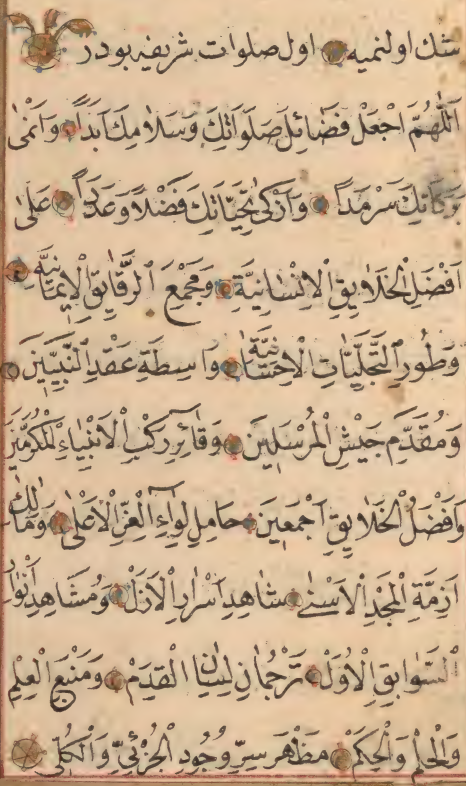 شك اولنميه اول صلوات شريفه بودر
اَللّٰهُمَّ اجْعَلْ فَضَائِلَ صَلَوَاتِكَ وَسَلَامِكَ اَبَدًا وَاَنْمٰى
بَرَكَاتِكَ سَرْمَدًا وَاَزْكٰى تَحِيَّاتِكَ فَضْلًا وَعَدَدًا عَلٰى
اَفْضَلِ الْخَلَايِقِ الْاِنْسَانِيَّةِ وَمَجْمَعِ الرَّقَايِقِ الْاِيمَانِيَّةِ
وَطُورِ التَّجَلِّيَّاتِ الْاِحْسَانِيَّةِ وَاسِطَةِ عَقْدِ النَّبِيِّينَ
وَمُقَدَّمِ جَيْشِ الْمُرْسَلِينَ وَقَائِدِ رَكْبِ الْاَنْبِيَاءِ الْمُكَرَّمِينَ
وَاَفْضَلُ الْخَلَايِقِ اَجْمَعِينَ حَامِلِ لِوَاءِ الْعِزِّ الْاَعْلٰى وَمَالِكُ
اَزِمَّةِ الْمَجْدِ الْاَسْنٰى شَاهِدِ اَسْرَارِ الْاَزَلْ وَمُشَاهِدِ اَنْوَارِ
السَّوَابِقِ الْاُوَلْ تَرْجُمَانِ لِسَانِ الْقِدَمْ وَمَنْبَعِ الْعِلْمِ
وَالْحِلْمِ وَالْحِكَمْ مَظْهَرِ سِرِّ وُجُودِ الْجُزْئِيِّ وَالْكُلِّيِّ